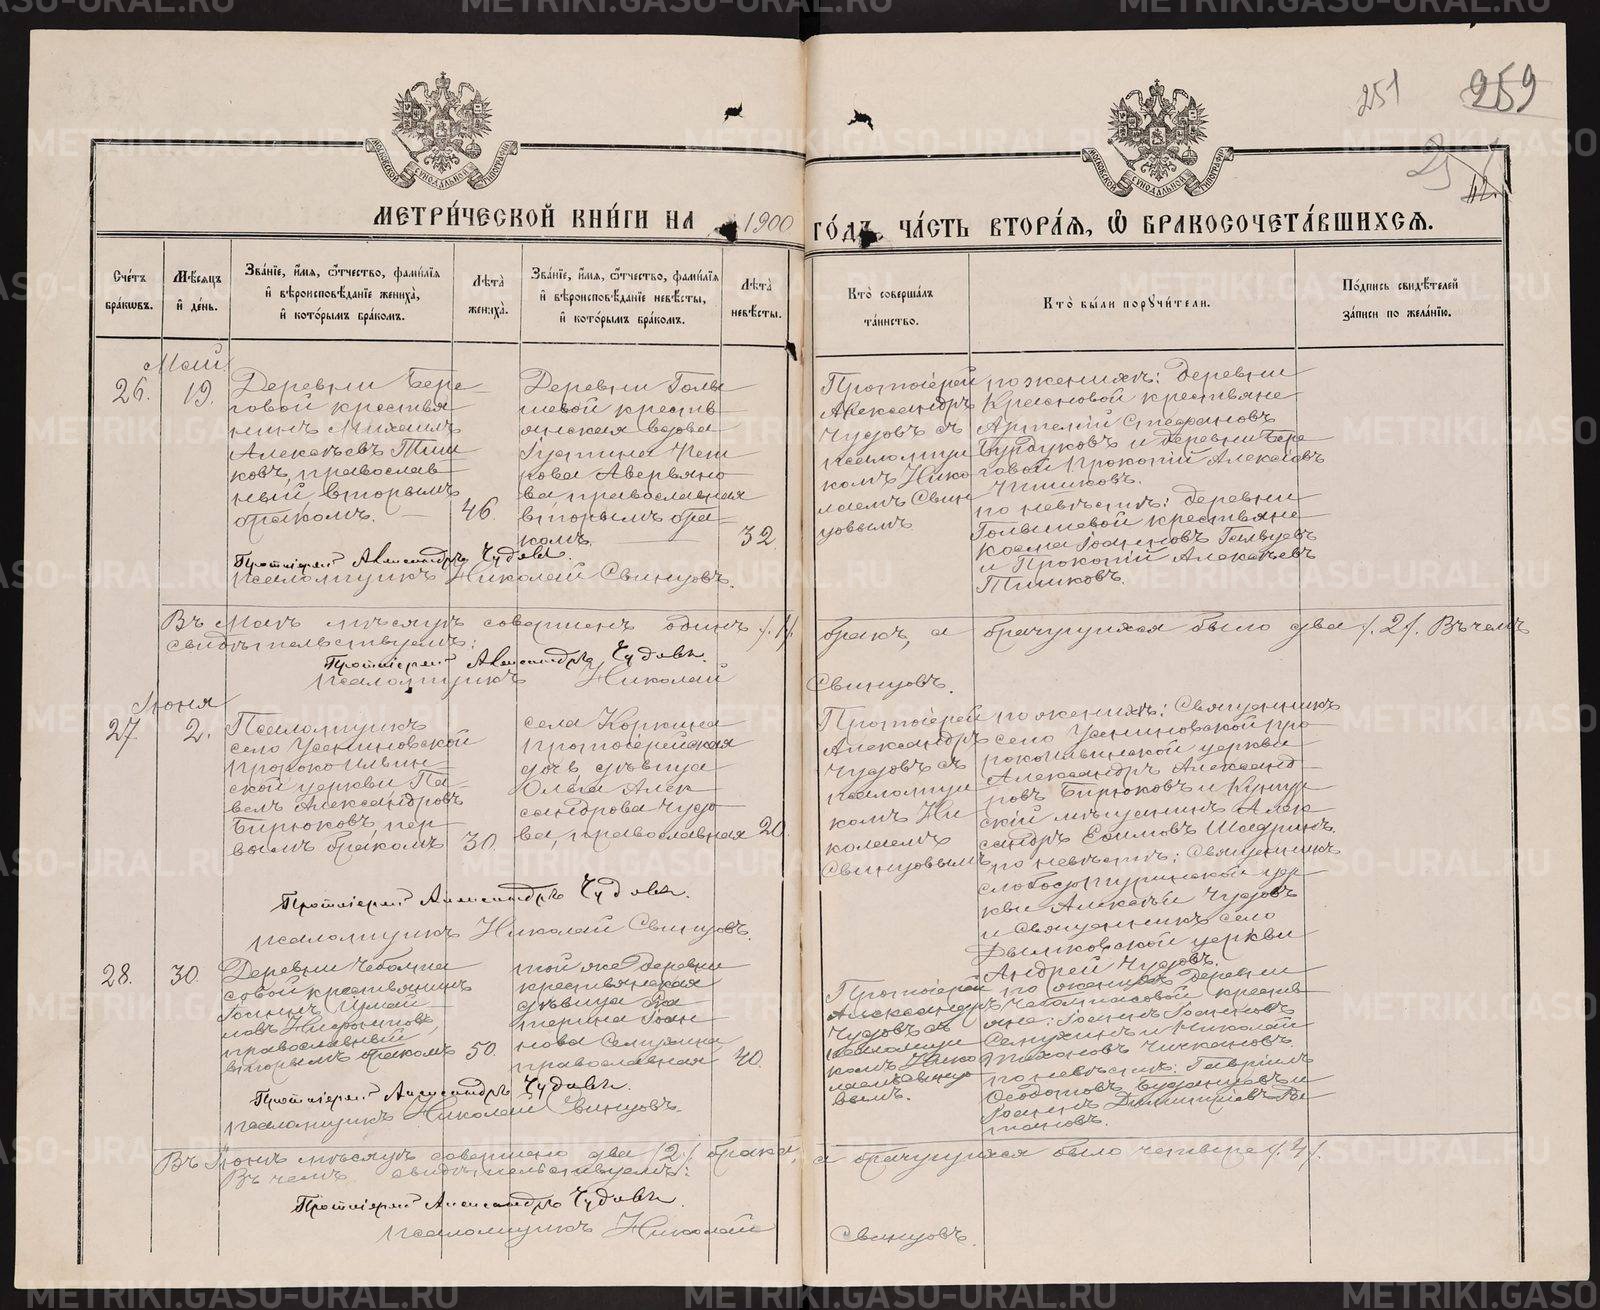 251 259
42
МОСКОВСКОЙ СѶНОДАЛЬНОЙ ТИПОГРАФІИ
МОСКОВСКОЙ СѶНОДАЛЬНОЙ ТИПОГРАФІИ
МЕТРИ́ЧЕСКОЙ КНИ́ГИ НА 1900 ГО́ДЪ, ЧА́СТЬ ВТОРА́Я, Ѿ БРАКОСОЧЕТА́ВШИХСЯ.
Сче́тъ бра́ковъ.
Мѣ́сяцъ и҆ де́нь.
Зва́нїе, и҆́мя, ѻ҆́тчество, фами́лїя и҆ вѣроисповѣ́данїе жениха̀, и҆ кото́рымъ бра́комъ.
Лѣ́та жениха̀.
Зва́нїе, и҆́мя, ѻ҆́тчество, фами́лїя и҆ вѣроисповѣ́данїе невѣ́сты, и҆ кото́рымъ бра́комъ.
Лѣ́та невѣ́сты.
Кто̀ соверша́лъ та́инство.
Кто̀ бы́ли поручи́тели.
По́дпись свидѣ́телей за́писи по жела́нїю.
Май
26.
19.
Деревни Бере-
говой крестья
нинъ Михаилъ
Алексѣевъ Тиш
ковъ, православ-
ный вторымъ
бракомъ.
46.
Деревни Голы
шевой крестья-
янская вдова
Іустина
кова Аверьяно
ва, православная
вторымъ бра-
комъ.
32
Протоіерей
Александръ
Чудовъ съ
псаломщи
комъ Нико
лаемъ Свин
цовымъ
по женихѣ: деревни
Красновой крестьяне
Артемій Стефановъ
и деревни Бере
говой Прокопій Алексѣевъ
Тишковъ.
по невѣстѣ: деревни
Голышевой крестьяне
Косма Іоанновъ
и Прокопій Алексѣевъ
Тишковъ.
Протоіерей Александръ Чудовъ.
псаломщикъ Николай Свинцовъ.
Въ Маѣ мѣсяцѣ совершенъ одинъ /1/ бракъ, а брачущихся было два /2/. Въ чемъ
свидѣтельствуемъ:
Протоіерей Александръ Чудовъ.
псаломщикъ Николай Свинцовъ.
Іюня
27
2.
Псаломщикъ
село Усениновской
Пророко Ильин-
ской церкви Па-
велъ Александровъ
Бирюковъ, пер-
вымъ бракомъ
30.
села Коркина
протоіерейская
дочь дѣвица
Ольга Алек-
сандрова Чудо-
ва, православная
20.
Протоіерей
Александръ
Чудовъ съ
псаломщи
комъ Ни
колаемъ
Свинцовымъ
по женихѣ: Священникъ
село Усениновской Про-
рокоильинской церкви
Александръ Александ-
ровъ Бирюковъ и Кунгур-
скій мѣщанинъ Алек-
сандръ Ефимовъ Шадринъ.
по невѣстѣ: Священникъ
Слободотуринской цер-
кви Алексѣй Чудовъ
и Священникъ село
Дымковской церкви
Андрей Чудовъ.
Протоіерей Александръ Чудовъ.
псаломщикъ Николай Свинцовъ.
28.
30.
Деревни
совой крестьянинъ
Іоаннъ
православный
вторымъ бракомъ
50.
той же деревни
крестьянская
дѣвица Ека
терина Іоан
нова Семухина
православная
40.
Протоіерей
Александръ
Чудовъ съ
псаломщи
комъ Нико
лаемъ Свинцо
вымъ.
по женихѣ: Деревни
крестья-
яне: Іоаннъ Іоанновъ
Семухинъ и Николай
Чичкановъ.
по невѣстѣ: Гавріилъ
Ѳедотовъ и
Іоаннъ Димитріевъ
Протоіерей Александръ Чудовъ.
псаломщикъ Николай Свинцовъ.
Въ Іюнѣ мѣсяцѣ совершено два /2/ брака, а брачущихся было четверо /4/.
Въ чемъ свидѣтельствуемъ:
Протоіерей Александръ Чудовъ
псаломщикъ Николай Свинцовъ.